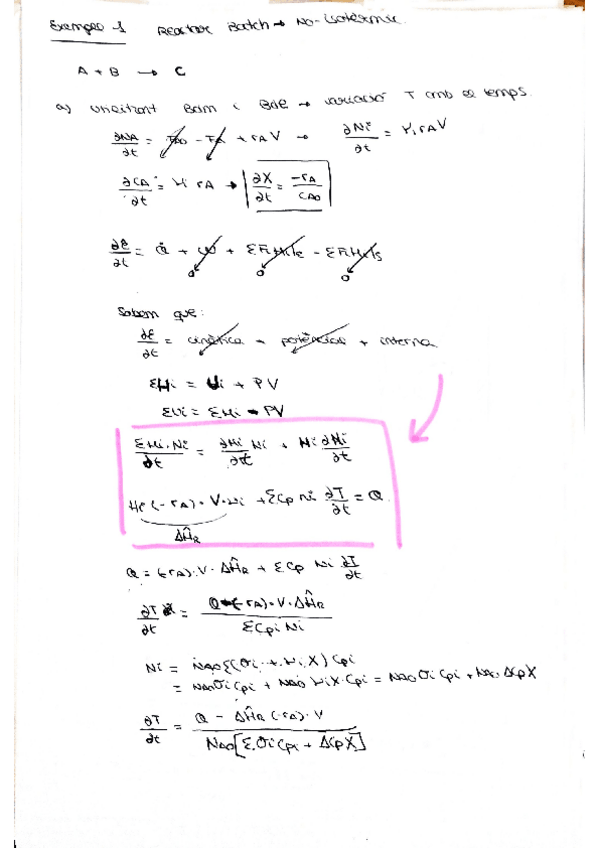 Exemple 1 Reactor Batch → No-isotèrmic
A + B → C
a) Utilitzant BdM i BdE → variació T amb el temps.
∂NA/∂t = FA0 - FA + rA V → ∂Ni/∂t = νi rA V
∂CA/∂t = νi rA → ∂X/∂t = -rA/CA0
∂E/∂t = Q + W + ΣFi Hi|e - ΣFi Hi|s
0 0 0
Sabem que:
∂E/∂t = cinètica + potencial + interna
ΣHi = Ui + PV
ΣUi = ΣHi - PV
ΣHi·Ni/∂t = ∂Hi/∂t Ni + Hi ∂Ni/∂t
Hi (-rA)·V·νi + ΣCp Ni ∂T/∂t = Q
ΔĤR
Q = (-rA)·V·ΔĤR + ΣCp Ni ∂T/∂t
∂T/∂t = Q-(-rA)·V·ΔĤR / ΣCpi Ni
Ni = NA0 Σ(Θi + νi X) Cpi
= NA0 Θi Cpi + NA0 νi X·Cpi = NA0 Θi Cpi + NA0 ΔCp X
∂T/∂t = Q - ΔĤR (-rA)·V / NA0[Σ Θi Cpi + ΔCp X]